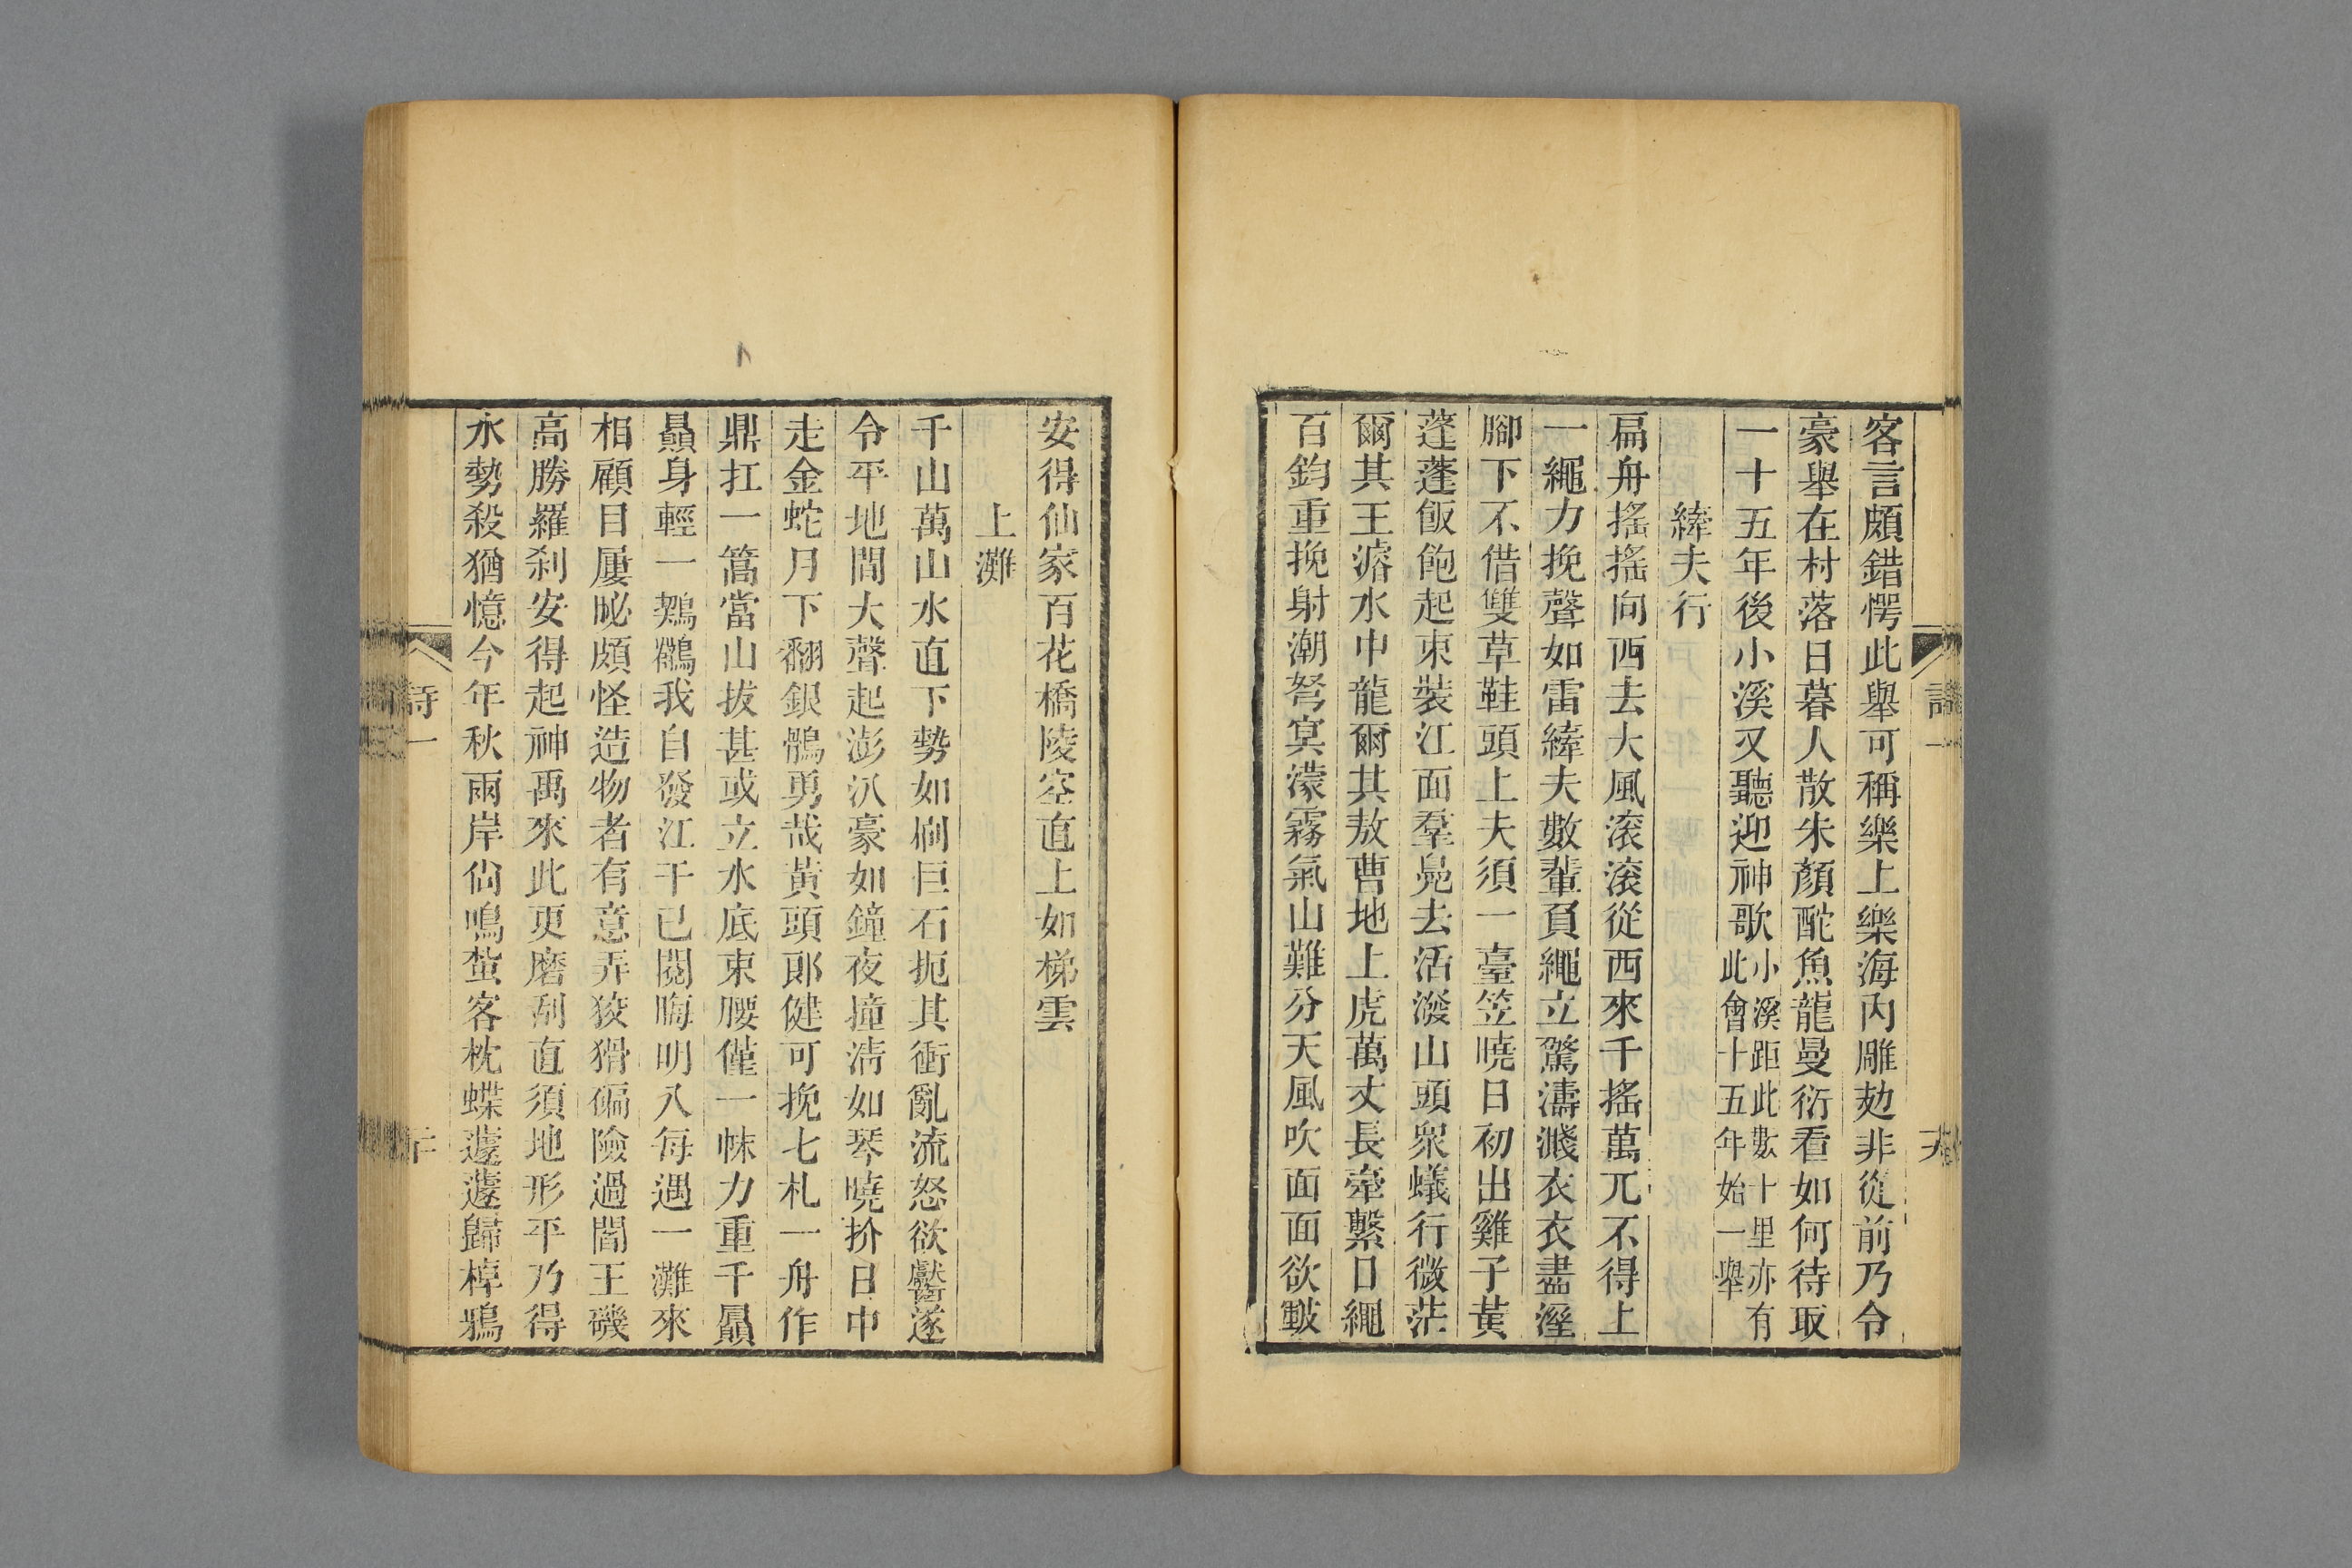 客言頗錯愕此舉可稱樂上樂海內雕𠡠非從前乃令
豪舉在村落日暮人散朱顏酡魚龍曼衍看如何待取
一十五年後小溪又聽迎神歌
小溪距此數十里亦有
此會十五年始一舉
縴夫行
扁舟搖搖向西去大風滾滾從西來千搖萬兀不得上
一繩力挽聲如雷縴夫數輩負繩立驚濤濺衣衣盡溼
腳下不借雙草鞋頭上夫須一臺笠曉日初出雞子黃
蓬蓬飯飽起束裝江面羣鳧去活潑山頭眾蟻行微茫
爾其王濬水中龍爾其敖曹地上虎萬丈長牽繫口繩
百鈞重挽射潮弩冥濛霧氣山難分天風吹面面欲皸
安得仙家百花橋陵空直上如梯雲
上灘
千山萬山水直下勢如剛巨石扼其衝亂流怒欲齾遂
令平地間大聲起澎汃豪如鐘夜撞清如琴曉扴日中
走金蛇月下翻銀鶻勇哉黃頭郎健可挽七札一舟作
鼎扛一篙當山拔甚或立水底束腰僅一帓力重千屭
贔身輕一鶈鶶我自發江干已閱晦明八每遇一灘來
相顧目屢眍頗怪造物者有意弄狡猾碥險過閻王磯
高勝羅刹安得起神禹來此更磨刮直須地形平乃得
水勢殺猶憶今年秋雨岸尙鳴蜇客枕蝶蘧蘧歸棹鴉
詩一